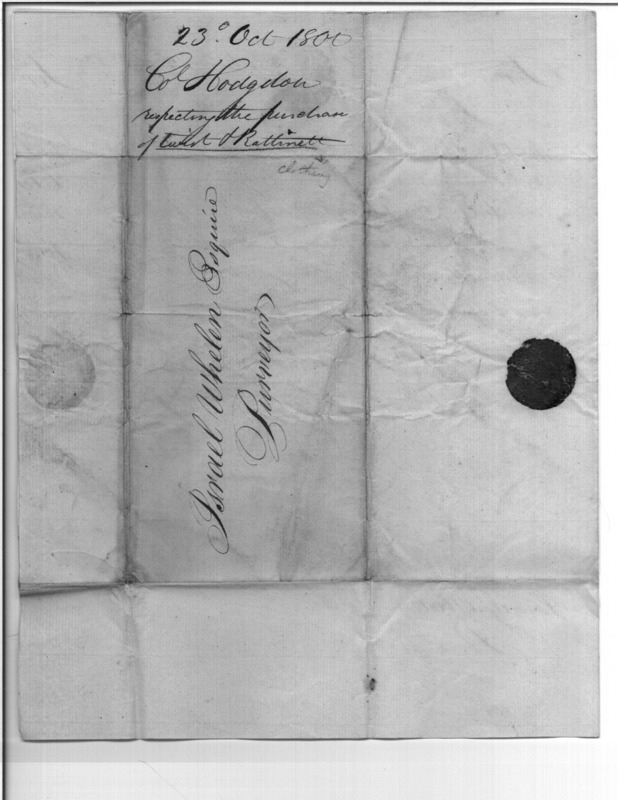 23d Oct 1800
Col Hodgdon
respecting the purchase
of twist & Rattinett
clothing
Israel Whelen Esquire
Purveyor